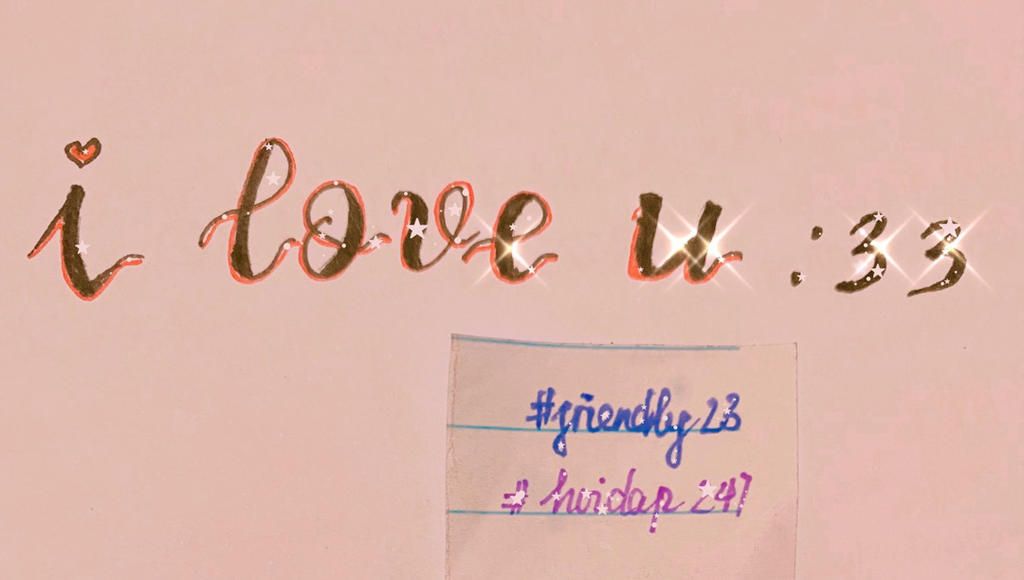 i love u :33
#friendly23
# hoidap 247